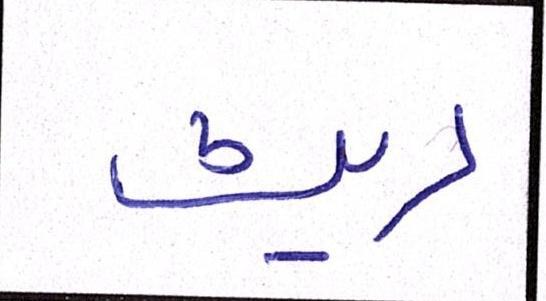 ریٹ